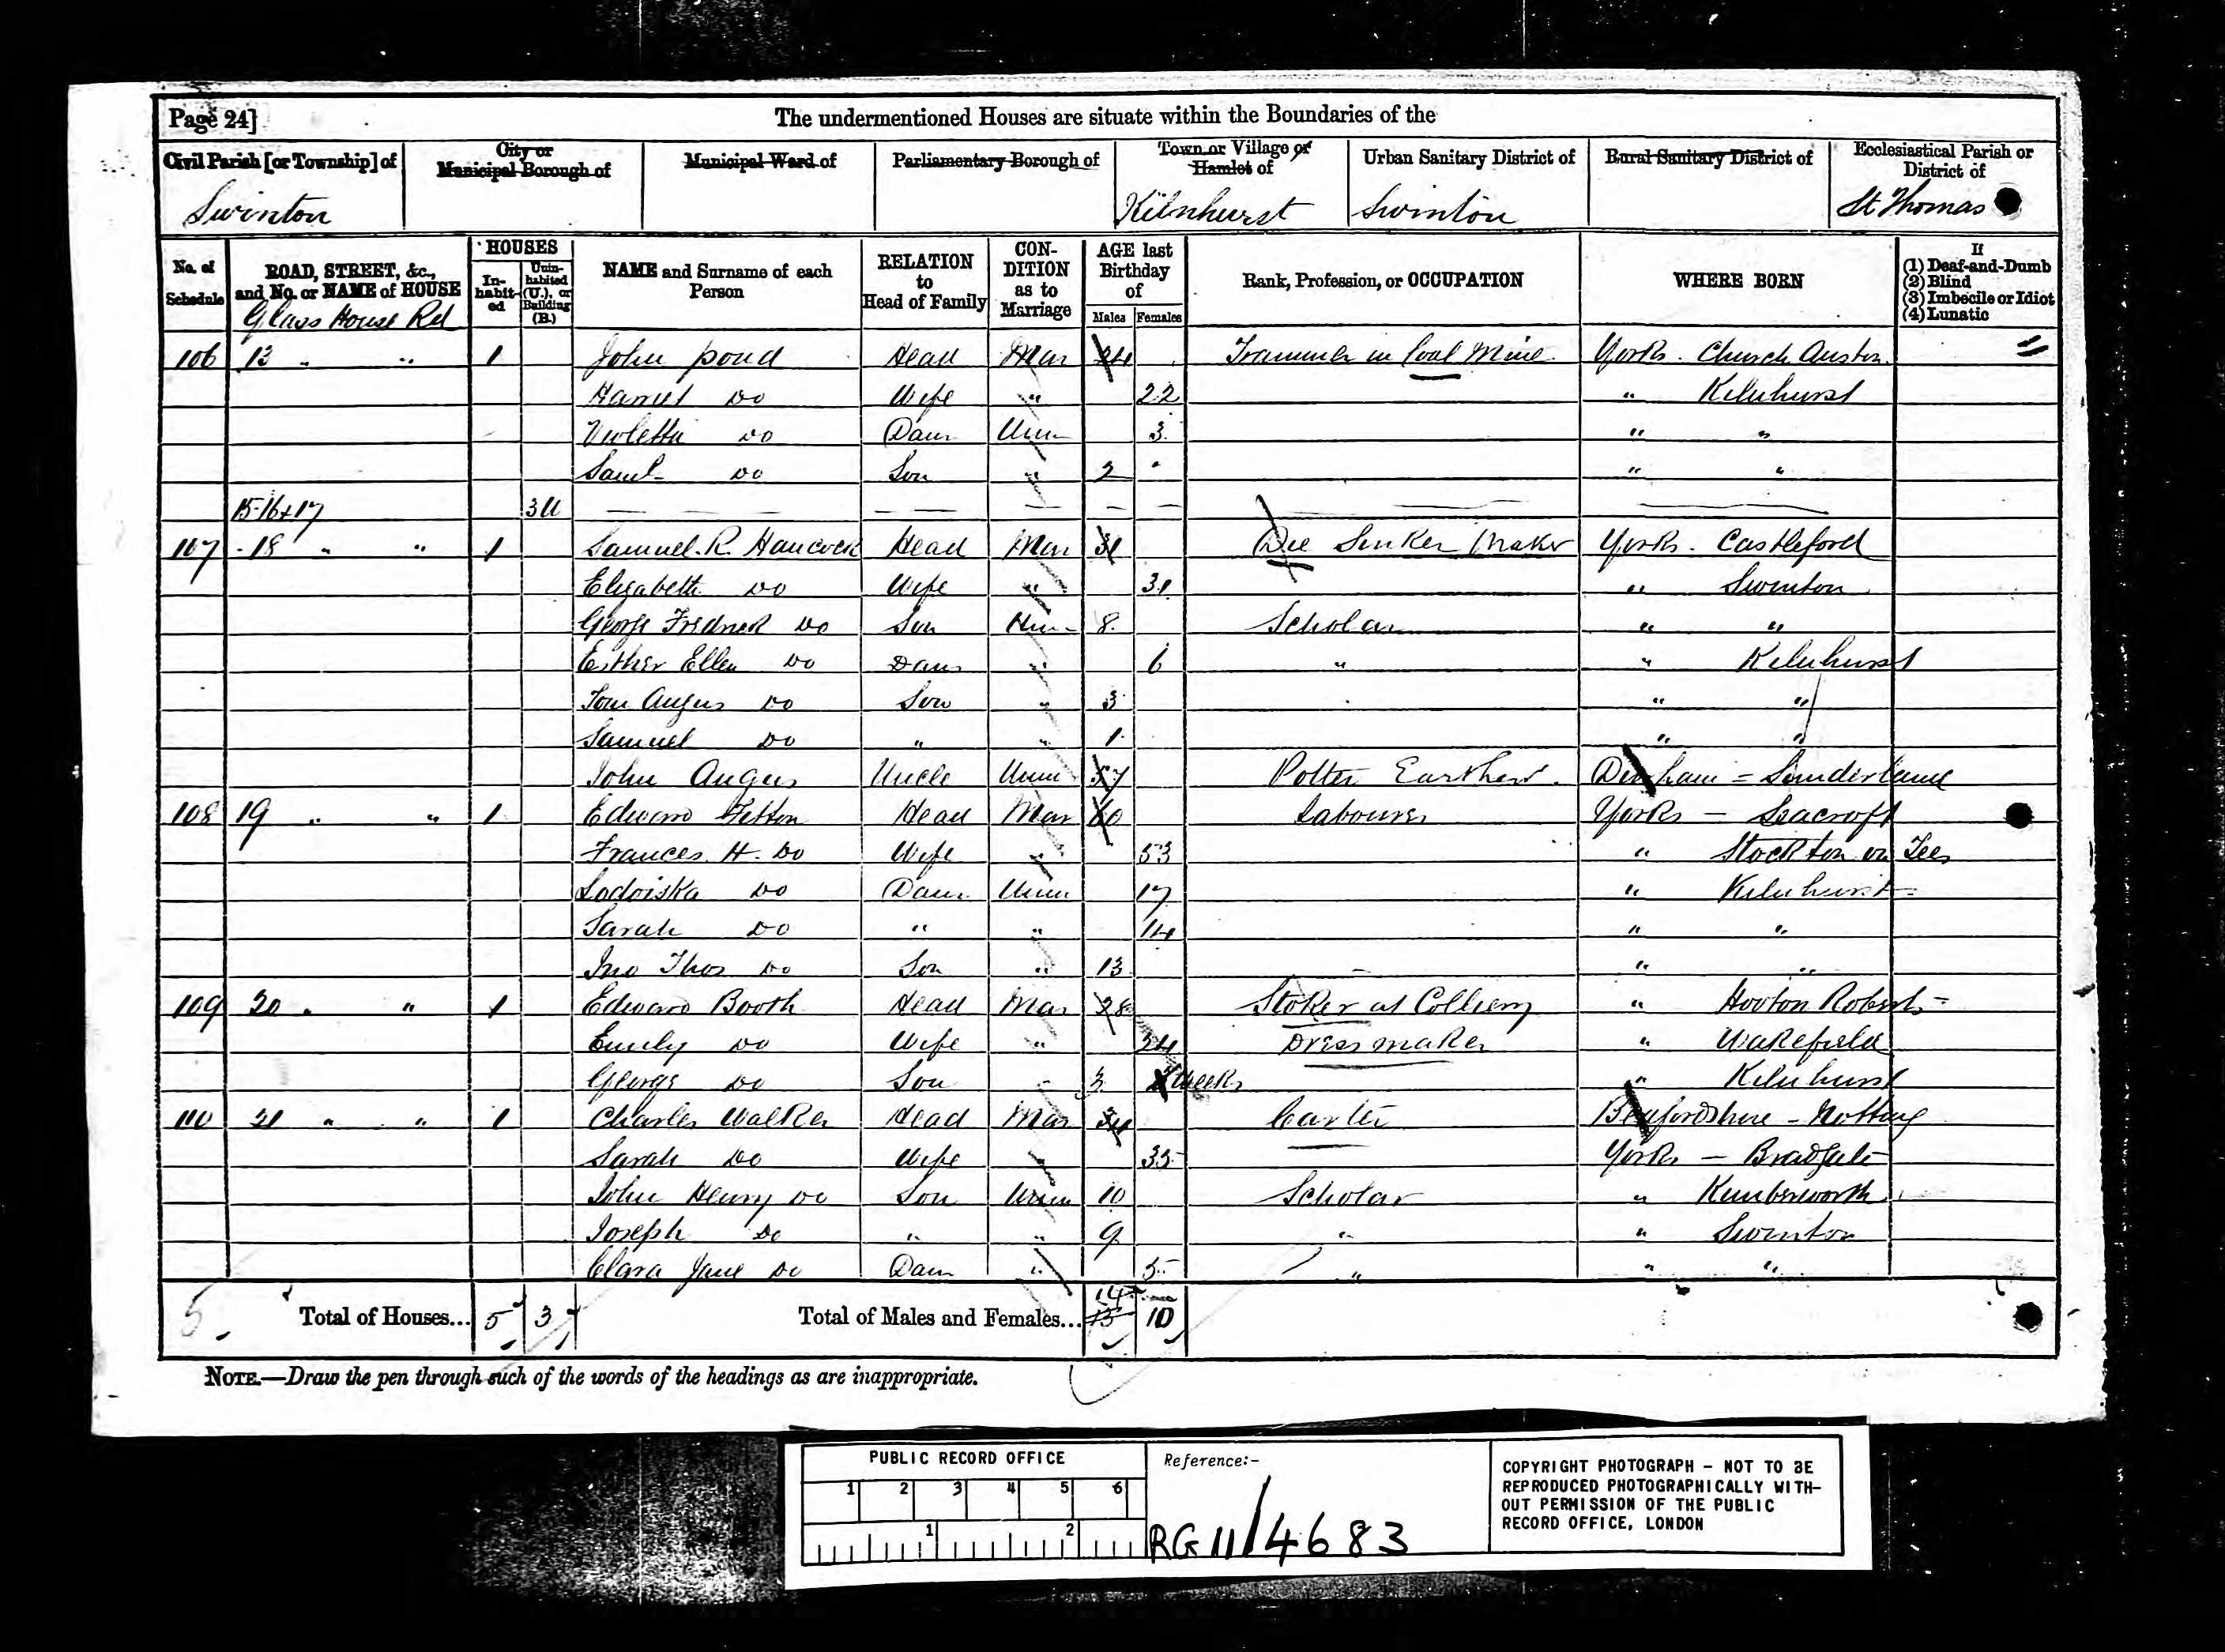 Page 24]
The undermentioned Houses are situate within the Boundaries of the
Civil Parish [or Township] of
City or Municipal Borough of
Municipal Ward of
Parliamentary Borough of
Town or Village or Hamlet of
Urban Sanitary District of
Rural Sanitary District of
Ecclesiastical Parish or District of
Swinton Kilnhurst Swinton St Thomas
No. of Schedule
ROAD, STREET, &c., and No. or NAME of HOUSE
HOUSES
Inhabited
Uninhabited (U.), or Building (B.)
NAME and Surname of each Person
RELATION to Head of Family
CONDITION as to Marriage
AGE last Birthday of
Males Females
Rank, Profession, or OCCUPATION
WHERE BORN
If
(1) Deaf-and-Dumb
(2) Blind
(3) Imbecile or Idiot
(4) Lunatic
Glass House Rd
106 13 " " 1 John Pond Head Mar 24 Trammer in Coal Mine Yorks. Church Auston
Harriet Do Wife " 22 " Kilnhurst
Violetta Do Daur Unm 3 " "
Saml Do Son " 2 " "
15-16+17 3U — — — — — —
107 18 " " 1 Samuel R. Hancock Head Mar 31 Die Sinker Maker Yorks. Castleford
Elizabeth Do Wife " 31 " Swinton
George Fredrick Do Son Unm 8 Scholar " "
Esther Ellen Do Daur " 6 " " Kilnhurst
Tom Angus Do Son " 3 " "
Samuel Do " " 1 " "
John Angus Uncle Unm 57 Potter Earthenw. Durham = Sunderland
108 19 " " 1 Edward Head Mar 60 Labourer Yorks — Seacroft
Frances H. Do Wife " 53 " Stockton on Tees
Lodoiska Do Daur Unm 17 " Kilnhurst
Sarah Do " " 14 " "
Jno Thos Do Son " 13 — " "
109 20 " " 1 Edward Booth Head Mar 28 Stoker at Colliery " Hooton Roberts
Emily Do Wife " 24 Dress maker " Wakefield
George Do Son " 3 Weeks " Kilnhurst
110 21 " " 1 Charles Walker Head Mar 34 Carter Bedfordshire -
Sarah Do Wife " 35 Yorks — Bradgate
John Henry Do Son Unm 10 Scholar " Kimberworth
Joseph Do " " 9 " " Swinton
Clara Jane Do Daur " 5 " " "
5 Total of Houses... 5 3 Total of Males and Females... 14 13 10
NOTE.—Draw the pen through such of the words of the headings as are inappropriate.
PUBLIC RECORD OFFICE
1 2 3 4 5 6
1 2
Reference:-
RG 11/4683
COPYRIGHT PHOTOGRAPH - NOT TO BE
REPRODUCED PHOTOGRAPHICALLY WITH-
OUT PERMISSION OF THE PUBLIC
RECORD OFFICE, LONDON